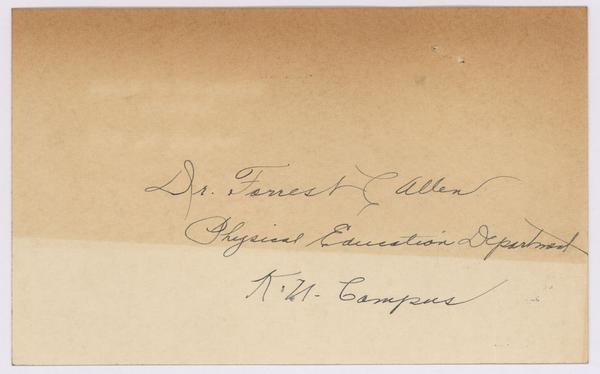 Dr. Forrest C Allen
Physical Education Department
K.U. Campus